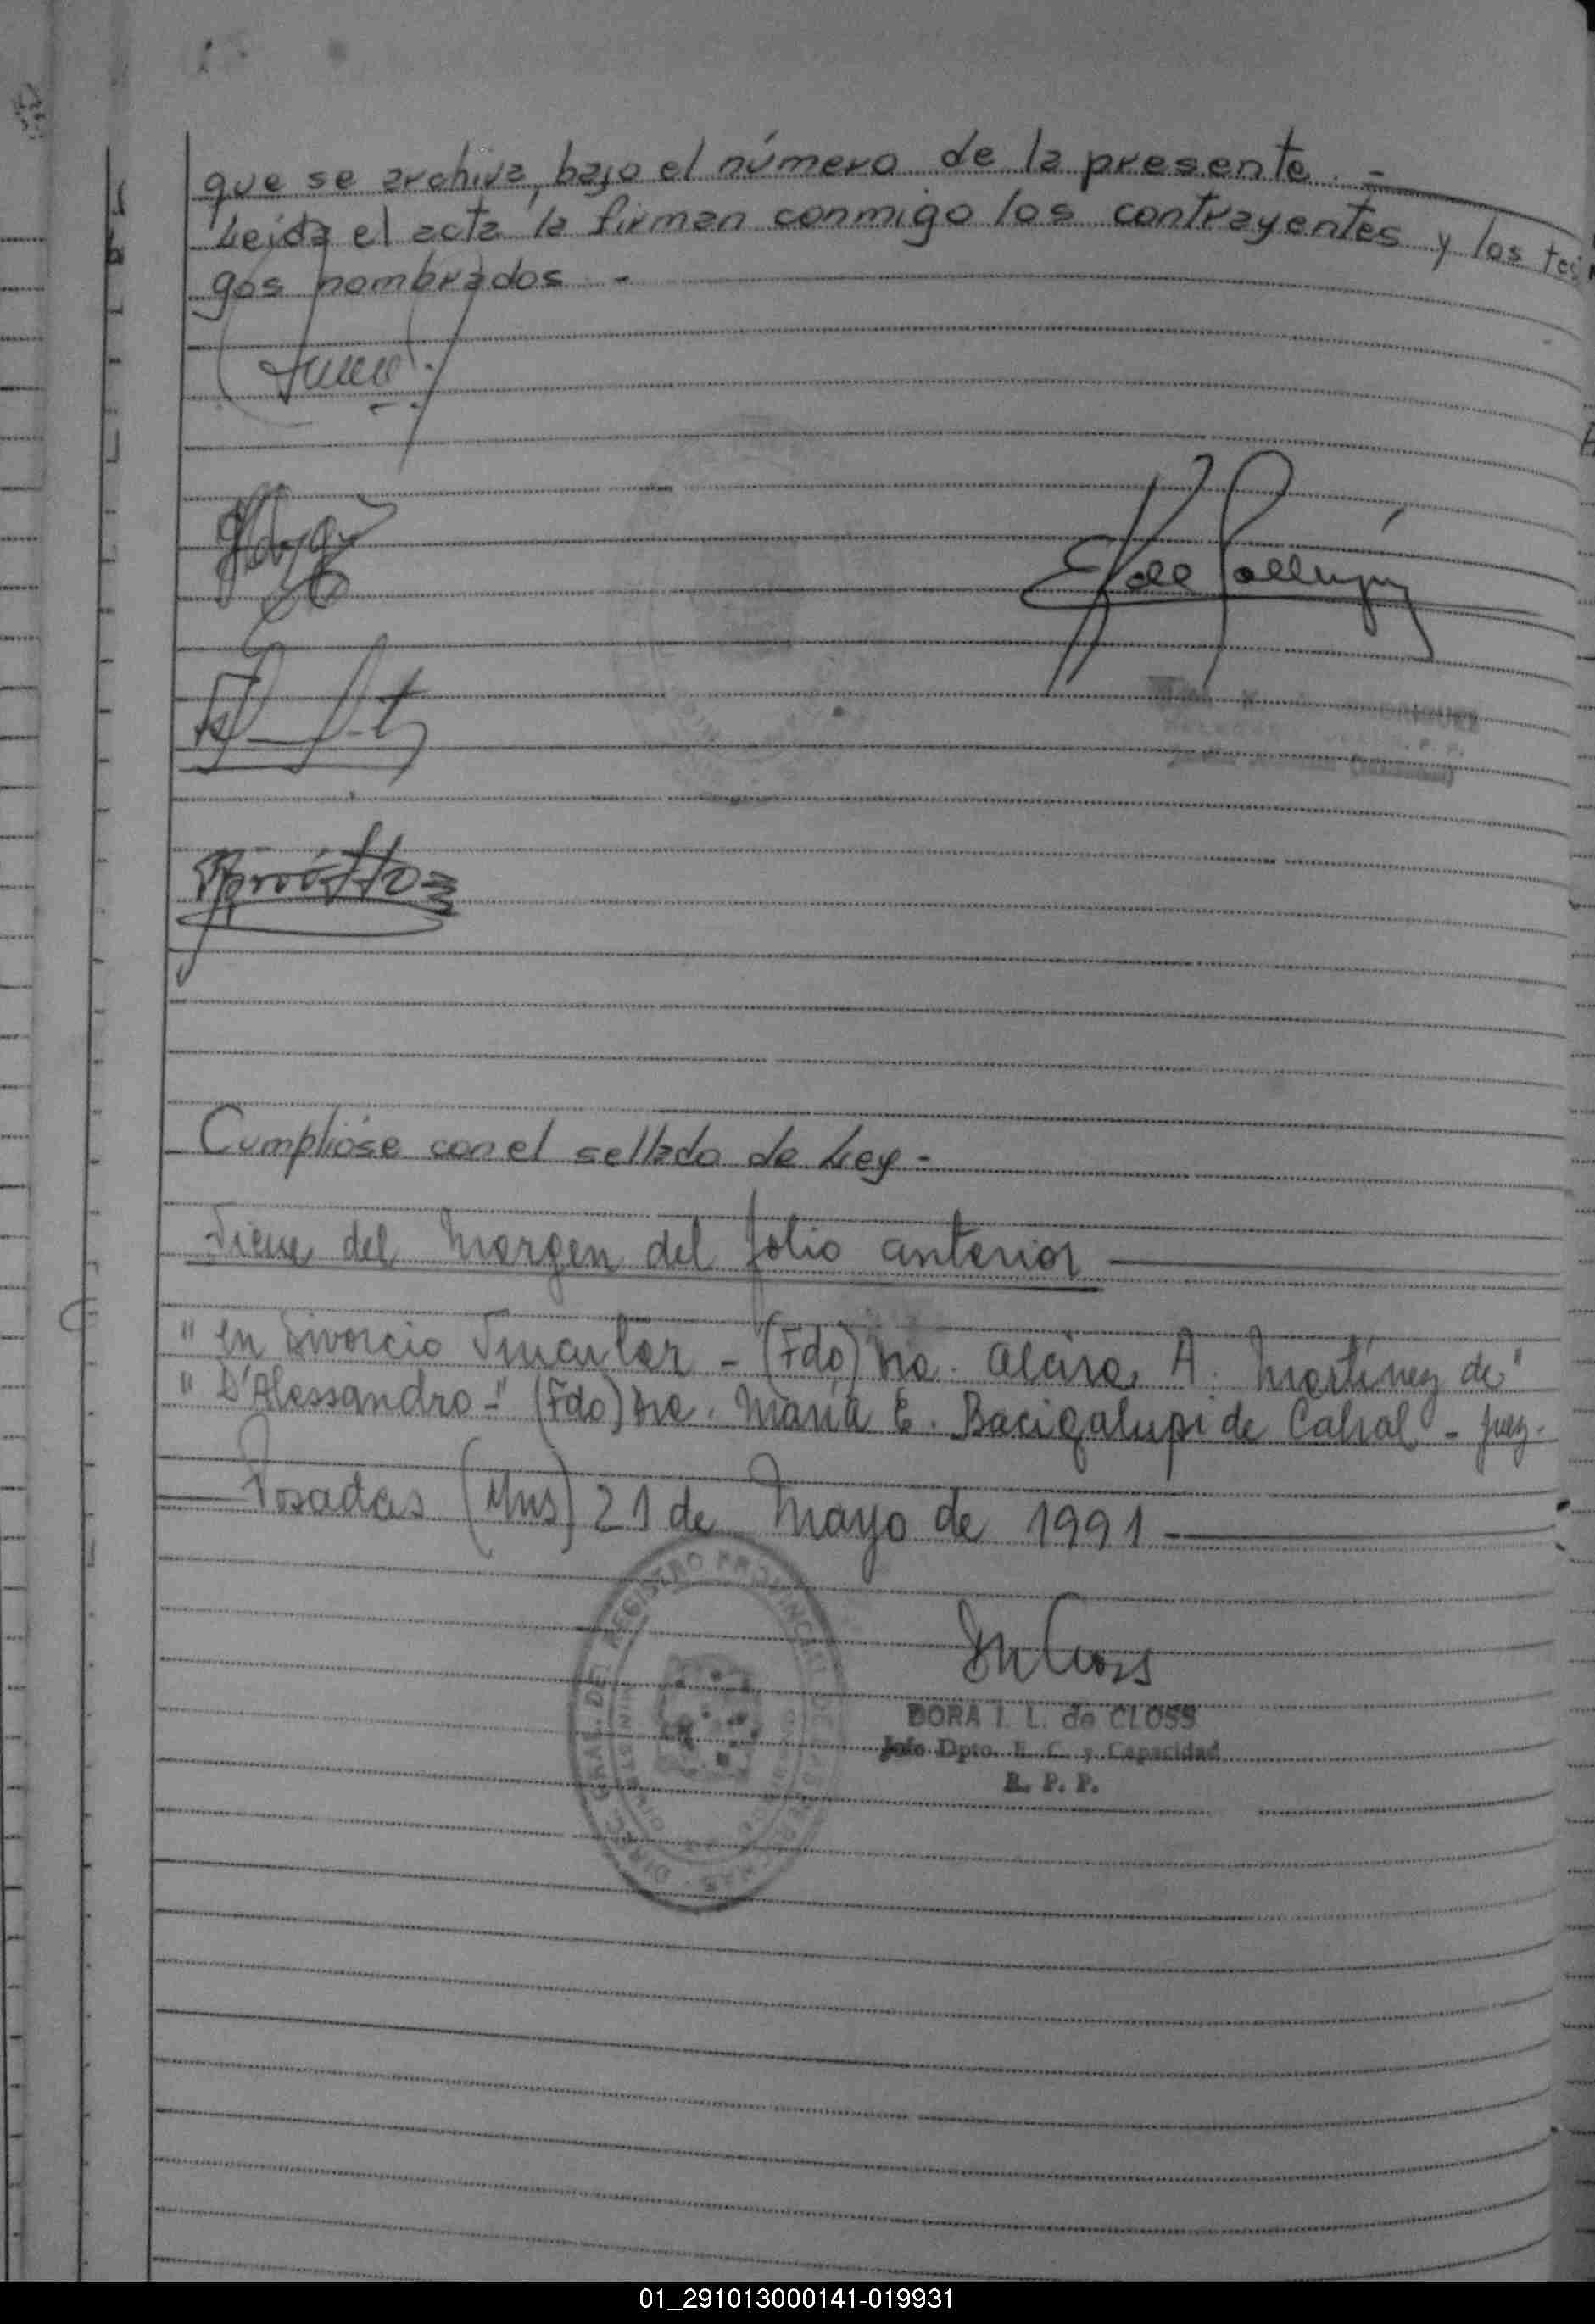 que se archiva, bajo el número de la presente. -
Leída el acta la firman conmigo los contrayentes y los testi
gos nombrados. -
Cumplióse con el sellado de Ley -
Viene del margen del folio anterior
" en Divorcio Vincular - (Fdo) Dra. Alcira A. Martínez de "
" D'Alessandro -" (Fdo) Dra. María E. Bacigalupi de Cabral - Juez -
Posadas (Mns) 21 de Mayo de 1991 -
DIREC. GRAL. DEL REGISTRO PROVINCIAL DE LAS PERSONAS
DORA I. L. de CLOSS
Jefe Dpto. E. C. y Capacidad
R. P. P.
01_291013000141-019931